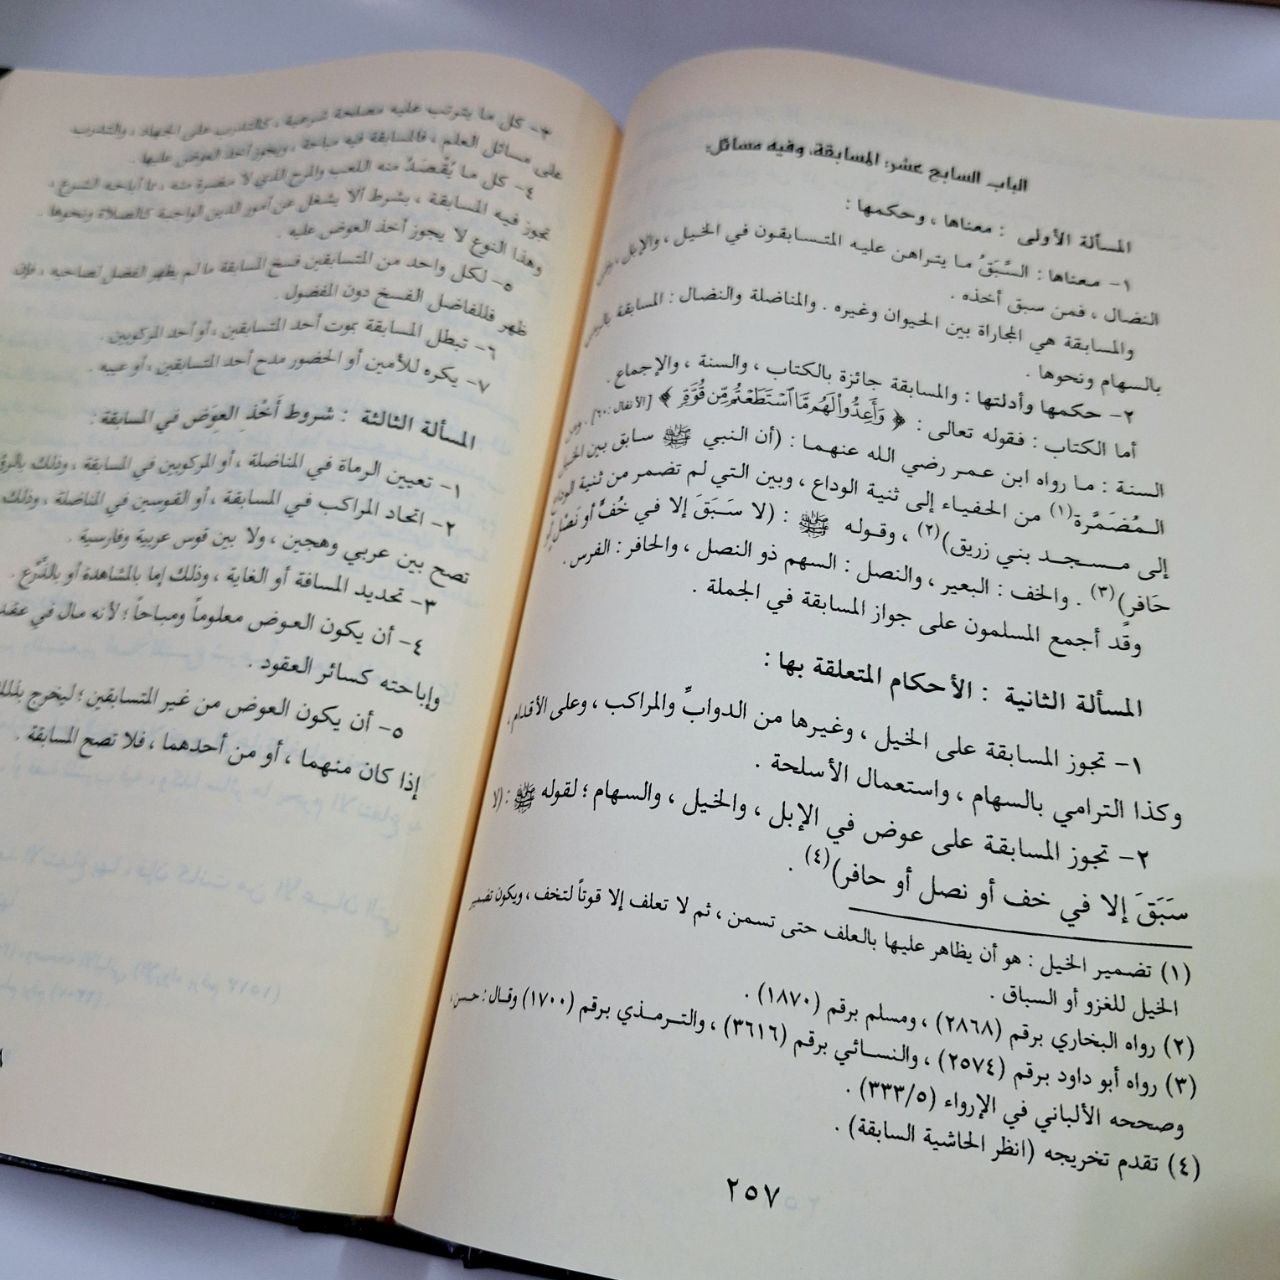 الباب السابع عشر: المسابقة، وفيه مسائل:
المسألة الأولى : معناها ، وحكمها :
١- معناها : السَّبَقُ ما يتراهن عليه المتسابقون في الخيل ، والإبل ،
النضال ، فمن سبق أخذه .
والمسابقة هي المجاراة بين الحيوان وغيره . والمناضلة والنضال : المسابقة
بالسهام ونحوها .
٢- حكمها وأدلتها : والمسابقة جائزة بالكتاب ، والسنة ، والإجماع .
أما الكتاب : فقوله تعالى : ﴿ وَأَعِدُّوا لَهُم مَّا ٱسْتَطَعْتُم مِّن قُوَّةٍ ﴾ [الأنفال: ٦٠] . ومن
السنة : ما رواه ابن عمر رضي الله عنهما : (أن النبي ﷺ سابق بين الخيل
المُضَمَّرة(١) من الحفياء إلى ثنية الوداع ، وبين التي لم تضمر من ثنية الوداع
إلى مسجد بني زريق)(٢) ، وقوله ﷺ : (لا سَبَقَ إلا في خُفٍّ أو نَصْلٍ أو
حَافرٍ)(٣) . والخف : البعير ، والنصل : السهم ذو النصل ، والحافر : الفرس .
وقد أجمع المسلمون على جواز المسابقة في الجملة .
المسألة الثانية : الأحكام المتعلقة بها :
١- تجوز المسابقة على الخيل ، وغيرها من الدوابِّ والمراكب ، وعلى الأقدام ،
وكذا الترامي بالسهام ، واستعمال الأسلحة .
٢- تجوز المسابقة على عوض في الإبل ، والخيل ، والسهام ؛ لقوله ﷺ : (لا
سَبَقَ إلا في خف أو نصل أو حافر)(٤) .
(١) تضمير الخيل : هو أن يظاهر عليها بالعلف حتى تسمن ، ثم لا تعلف إلا قوتاً لتخف ، ويكون تضمير
الخيل للغزو أو السباق .
(٢) رواه البخاري برقم (٢٨٦٨) ، ومسلم برقم (١٨٧٠) .
(٣) رواه أبو داود برقم (٢٥٧٤) ، والنسائي برقم (٣٦١٦) ، والترمذي برقم (١٧٠٠) وقال : حسن ،
وصححه الألباني في الإرواء (٥/٣٣٣) .
(٤) تقدم تخريجه (انظر الحاشية السابقة) .
٢٥٧
٣- كل ما يترتب عليه مصلحة شرعية ، كالتدرب على الجهاد ، والتدرب
على مسائل العلم ، فالمسابقة فيه مباحة ، ويجوز أخذ العوض عليها .
٤- كل ما يُقْصَدُ منه اللعب والمرح الذي لا مضرة فيه ، مما أباحه الشرع ،
تجوز فيه المسابقة ، بشرط ألا يشغل عن أمور الدين الواجبة كالصلاة ونحوها .
وهذا النوع لا يجوز أخذ العوض عليه .
٥- لكل واحد من المتسابقين فسخ المسابقة ما لم يظهر الفضل لصاحبه ، فإن
ظهر فللفاضل الفسخ دون المفضول .
٦- تبطل المسابقة بموت أحد المتسابقين ، أو أحد المركوبين .
٧- يكره للأمين أو الحضور مدح أحد المتسابقين ، أو عيبه .
المسألة الثالثة : شروط أَخْذِ العِوَض في المسابقة :
١- تعيين الرماة في المناضلة ، أو المركوبين في المسابقة ، وذلك
٢- اتحاد المراكب في المسابقة ، أو القوسين في المناضلة ، وذلك
تصح بين عربي وهجين ، ولا بين قوس عربية وفارسية .
٣- تحديد المسافة أو الغاية ، وذلك إما بالمشاهدة أو بالذَّرْع .
٤- أن يكون العوض معلوماً ومباحاً ؛ لأنه مال في عقد
وإباحته كسائر العقود .
٥- أن يكون العوض من غير المتسابقين ؛ ليخرج بذلك
إذا كان منهما ، أو من أحدهما ، فلا تصح المسابقة .